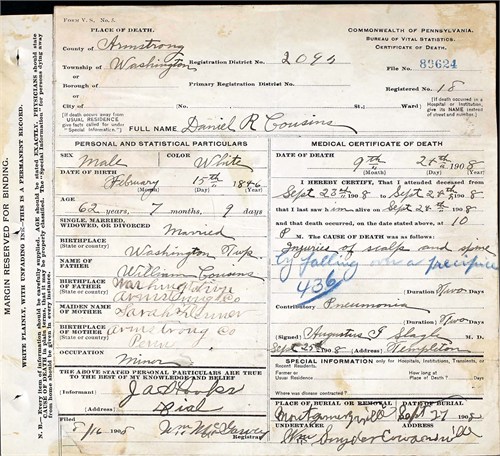 FORM V. S. No. 5.
PLACE OF DEATH.
County of Armstrong
Township of Washington
Registration District No. 2095
or
Borough of
Primary Registration District No.
or
City of
(No.
St.;
Ward)
COMMONWEALTH OF PENNSYLVANIA.
BUREAU OF VITAL STATISTICS.
CERTIFICATE OF DEATH.
File No. 83624
Registered No. 18
[If death occurred in a Hospital or Institution, give its NAME instead of street and number]
[If death occurs away from USUAL RESIDENCE give facts called for under "Special Information"]
FULL NAME Daniel R Cousins
PERSONAL AND STATISTICAL PARTICULARS
SEX Male
COLOR White
DATE OF BIRTH
February 15th 1846
(Month) (Day) (Year)
AGE
62 years, 7 months, 9 days
SINGLE, MARRIED, WIDOWED, OR DIVORCED
Married
BIRTHPLACE
(State or country)
Washington Twp.
NAME OF FATHER
William Cousins
BIRTHPLACE OF FATHER
(State or country)
Washington Twp
Armstrong Co
MAIDEN NAME OF MOTHER
Sarah
BIRTHPLACE OF MOTHER
(State or country)
Armstrong Co
OCCUPATION
Minor
THE ABOVE STATED PERSONAL PARTICULARS ARE TRUE TO THE BEST OF MY KNOWLEDGE AND BELIEF
(Informant)
(Address)
Filed
MEDICAL CERTIFICATE OF DEATH.
DATE OF DEATH
9th 24th 1908
(Month) (Day) (Year)
I HEREBY CERTIFY, That I attended deceased from
Sept 23rd 1908 to Sept 24th 1908
that I last saw h alive on Sept 24th 1908
and that death occurred, on the date stated above, at 10
P M. The CAUSE OF DEATH was as follows:
Injuries of scalp and spine
by falling over a precipice
436
DURATION Two Days
Contributory Pneumonia
DURATION Two Days
(Signed) Augustus T
Sept 25th 1908 (Address) Templeton
SPECIAL INFORMATION only for Hospitals, Institutions, Transients, or Recent Residents.
Former or Usual Residence
How long at Place of Death? Days
Where was disease contracted, if not at place of death?
PLACE OF BURIAL OR REMOVAL
DATE OF BURIAL OR REMOVAL
Montgomeryville Sept 27 1908
UNDERTAKER
(Address)
Wm Snyder Cowansville
MARGIN RESERVED FOR BINDING.
WRITE PLAINLY, WITH UNFADING INK—THIS IS A PERMANENT RECORD.
N. B.—Every item of information should be carefully supplied. AGE should be stated EXACTLY. PHYSICIANS should state CAUSE OF DEATH in plain terms, that it may be properly classified. The "Special Information" for persons dying away from home should be given in every instance.